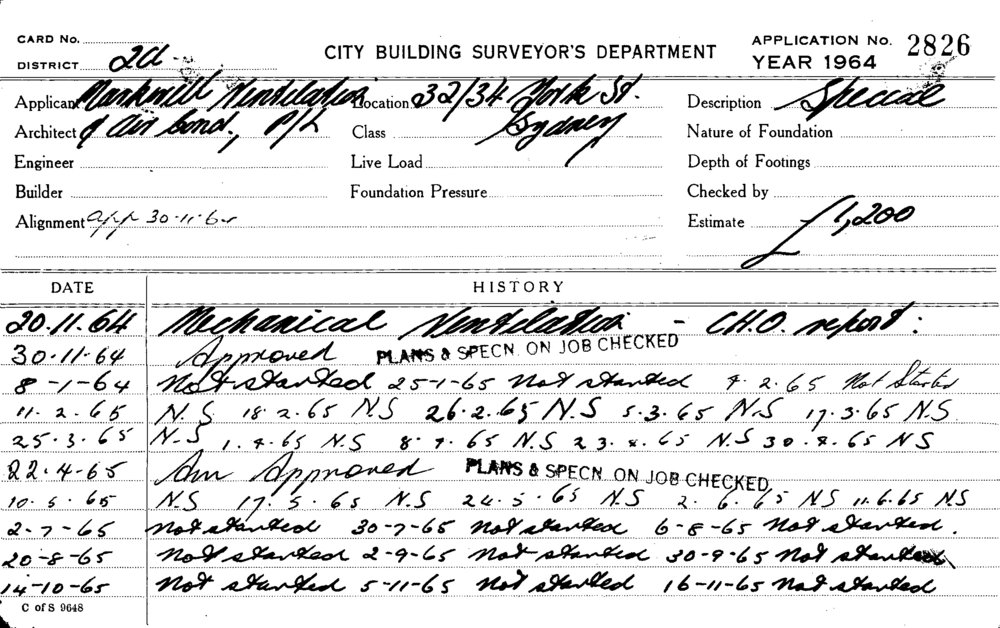 CARD No.
DISTRICT 2d
CITY BUILDING SURVEYOR'S DEPARTMENT
APPLICATION No. 2826
YEAR 1964
Applicant Ventilation Location 32/34 York St. Description Special
Architect & Air Cond., P/L Class Sydney Nature of Foundation
Engineer Live Load Depth of Footings
Builder Foundation Pressure Checked by
Alignment app 30-11-64 Estimate £1,200
DATE HISTORY
20.11.64 Mechanical Ventilation - C.H.O. report:
30.11.64 Approved PLANS & SPECN. ON JOB CHECKED
8-1-64 Not started 25-1-65 Not started 4.2.65 Not Started
11.2.65 N.S 18.2.65 N.S 26.2.65 N.S 5.3.65 N.S 17.3.65 N.S.
25.3.65 N.S 1.4.65 N.S 8.4.65 N.S 23.4.65 N.S 30.4.65 NS
22.4.65 Am Approved PLANS & SPECN. ON JOB CHECKED
10.5.65 N.S 17.5.65 N.S 24.5.65 N.S 2.6.65 NS 11.6.65 NS
2-7-65 Not started 30-7-65 Not started 6-8-65 Not started.
20-8-65 Not started 2-9-65 Not started 30-9-65 Not started
14-10-65 Not started 5-11-65 Not started 16-11-65 Not started
C of S 9648